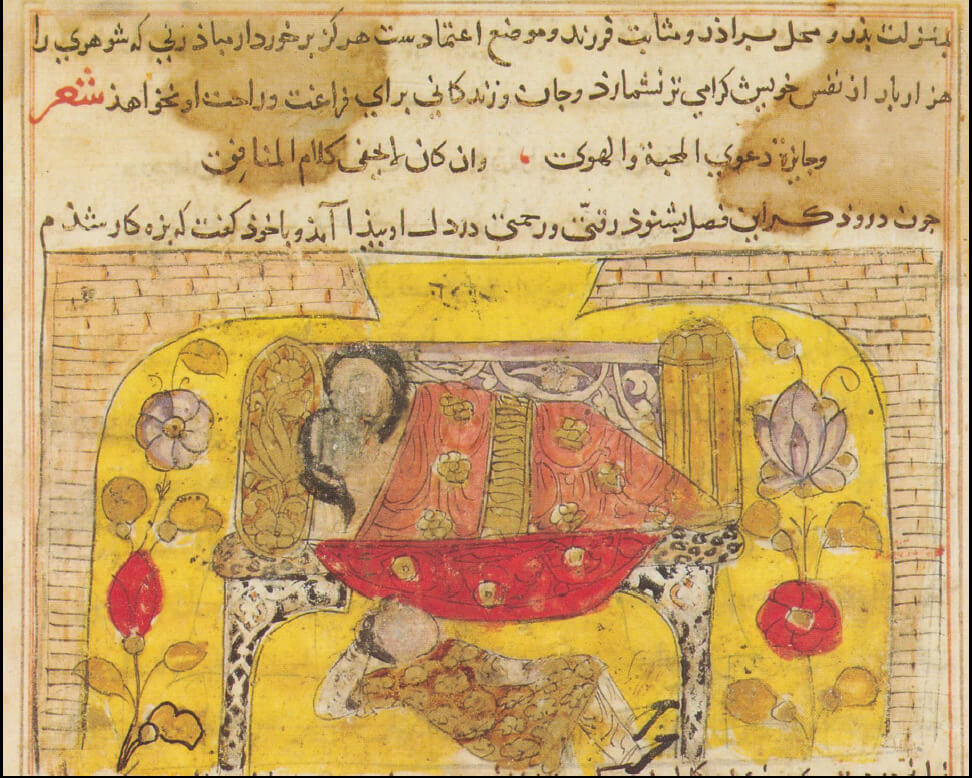 بمنزلت پدر و محل برادر و مثابت فرزند و موضع اعتمادست هرگز برخوردار مباذ زنی که شوهری را
هزار بار از نفس خویش گرامی تر نشمارد و جان و زندگانی برای فراغت و راحت او نخواهذ شعر
وجایزة دعوی المحبة والهوی وان کان لایخفی کلام المنافق
چون درودگر این فصل بشنوذ رقتی و رحمتی در دل او پیذا آمذ و با خوذ گفت که بزه کار شذم